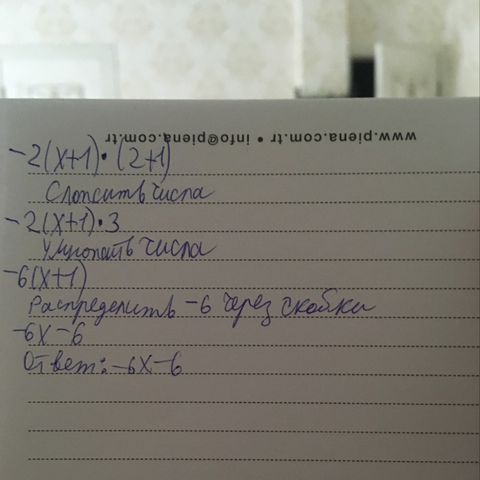 www.piena.com.tr • info@piena.com.tr
-2(x+1)•(2+1)
Сложить числа
-2(x+1)•3
Умножать числа
-6(x+1)
Распределить -6 через скобки
-6x-6
Ответ: -6x-6